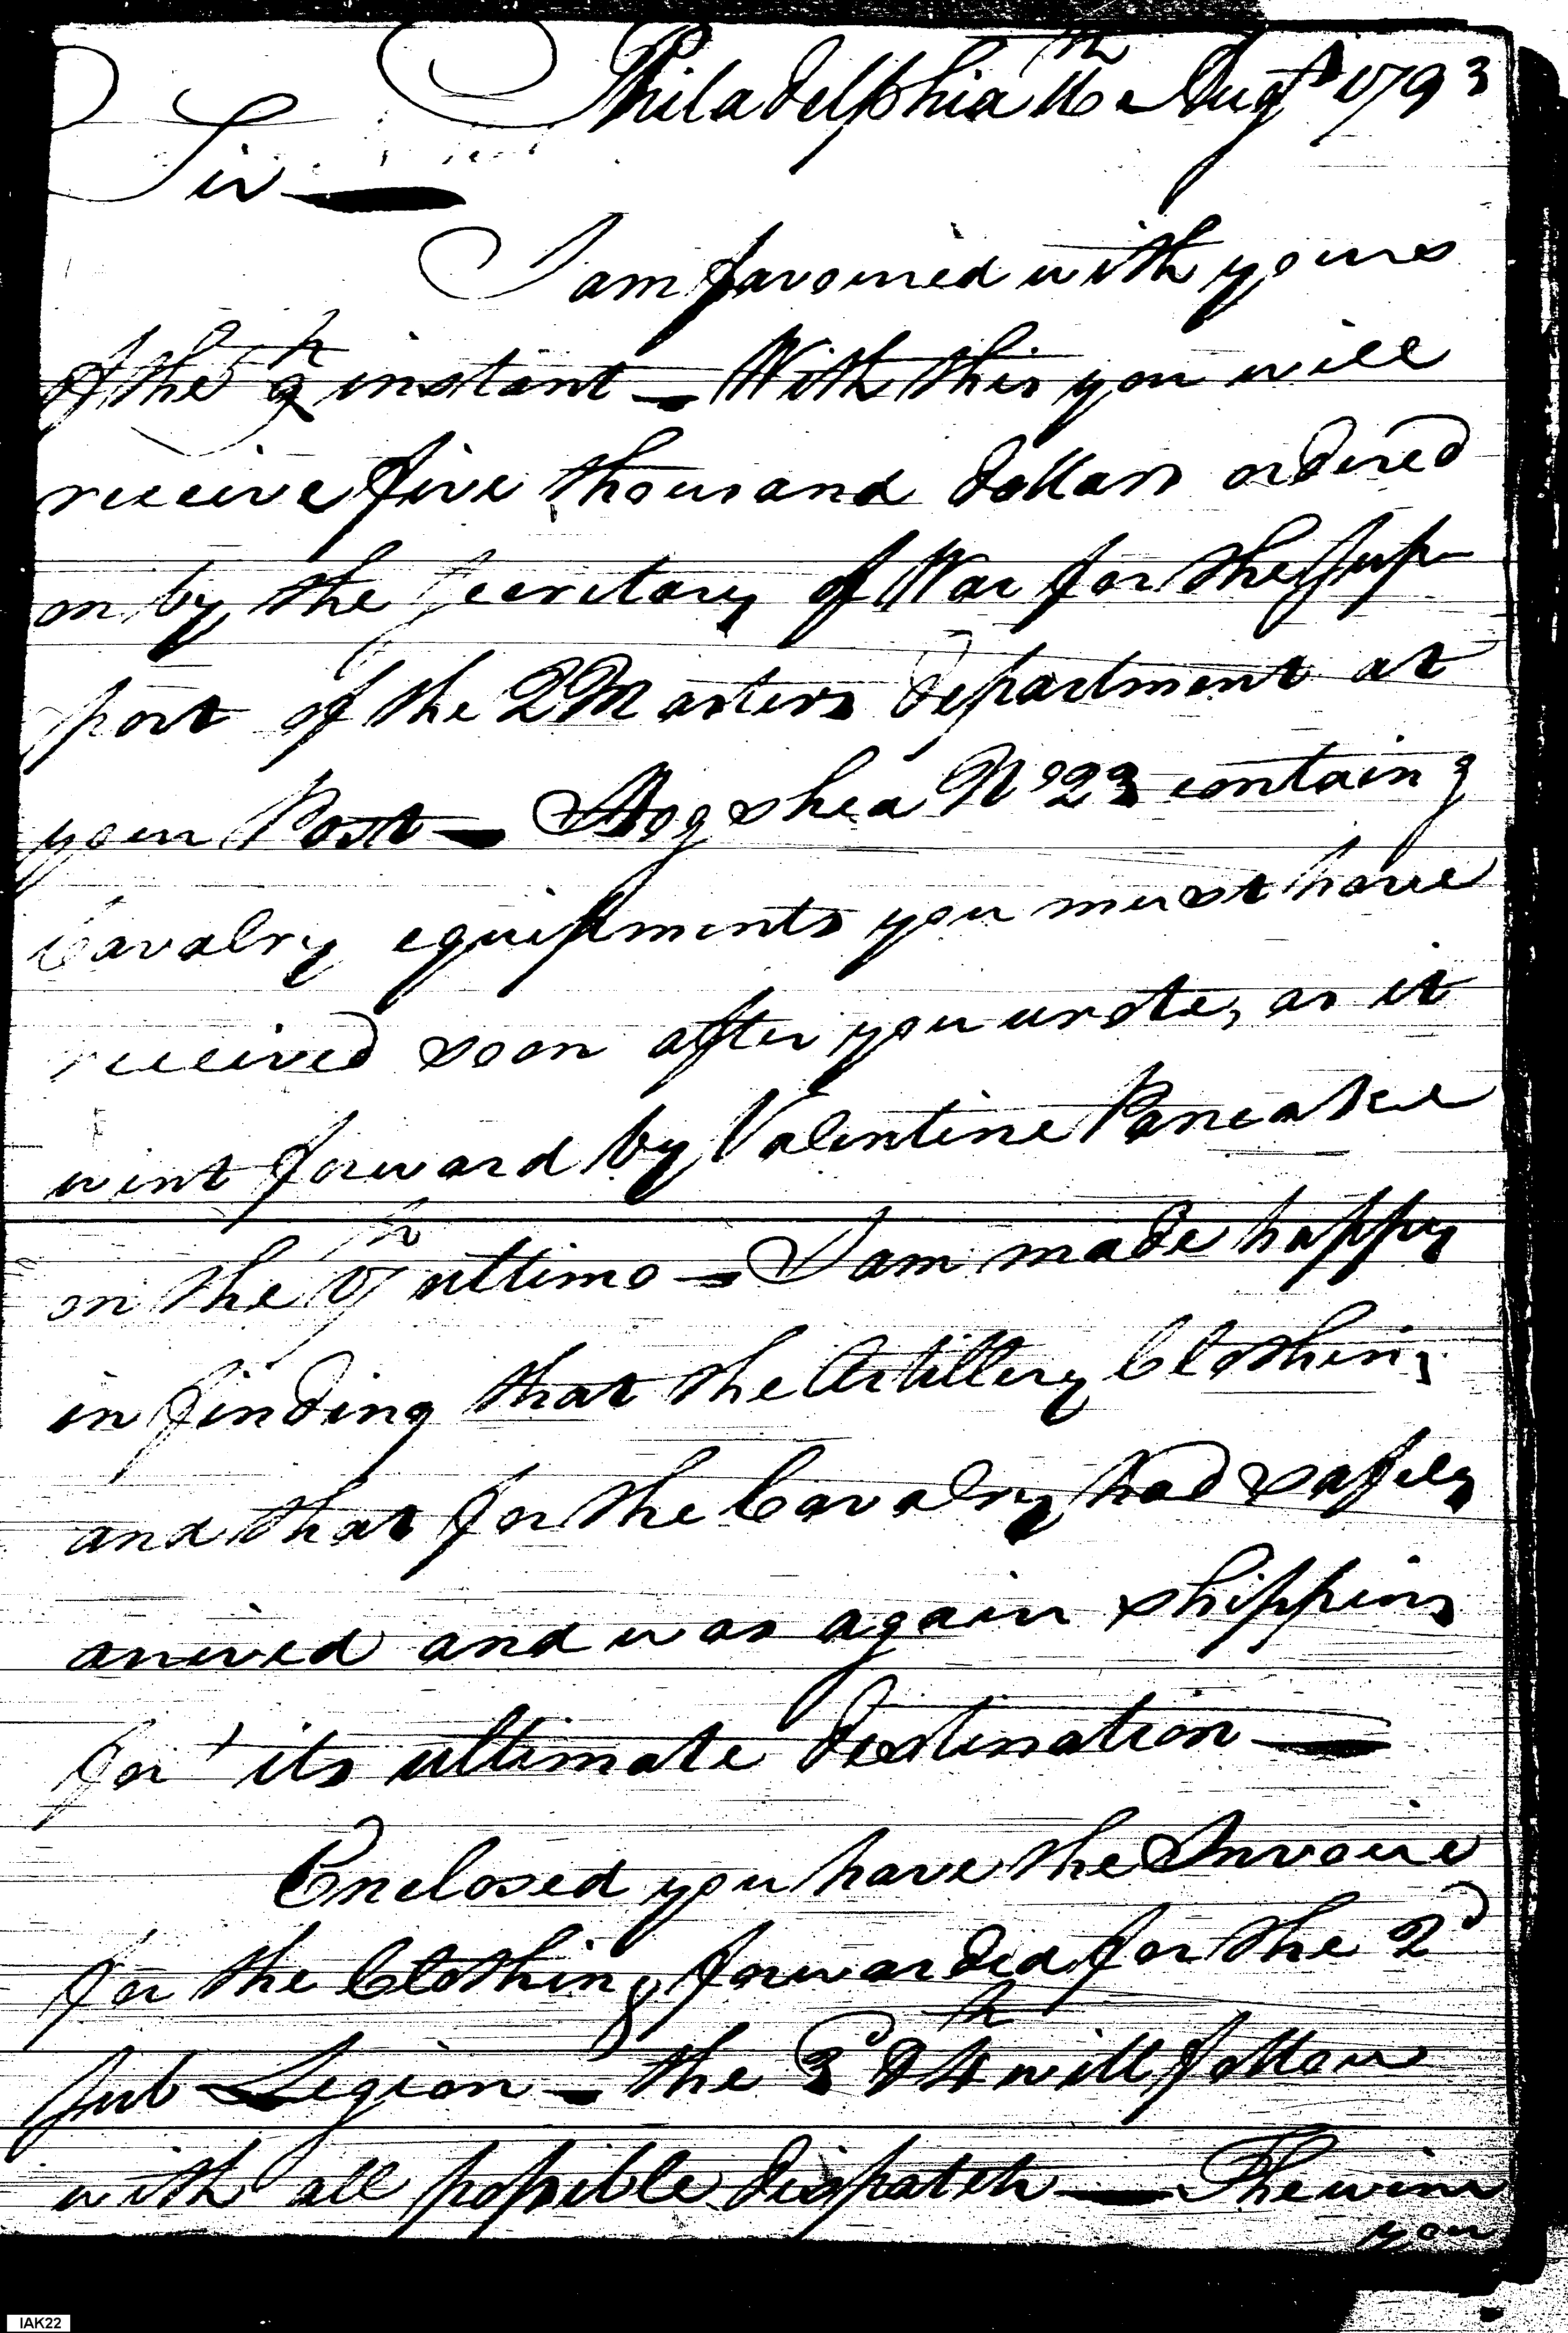 Philadelphia 16th Augt 1793
Sir
I am favoured with yours
of the 9th instant — With this you will
receive five thousand dollars ordered
on by the Secretary of War for the Sup-
port of the QMasters department at
your Post — Hogshead No 23 containg
Cavalry equipments you must have
received soon after you wrote, as it
went forward by Valentine Pancake
on the 17th ultimo — I am made happy
in finding that the Artillery Clothing
and that for the Cavalry had safely
arrived and was again shipping
for its ultimate destination —
Enclosed you have the Invoice
for the Clothing forwarded for the 2d
Sub Legion — the 3d & 4th will follow
with all possible dispatch — The wine
you
IAK22